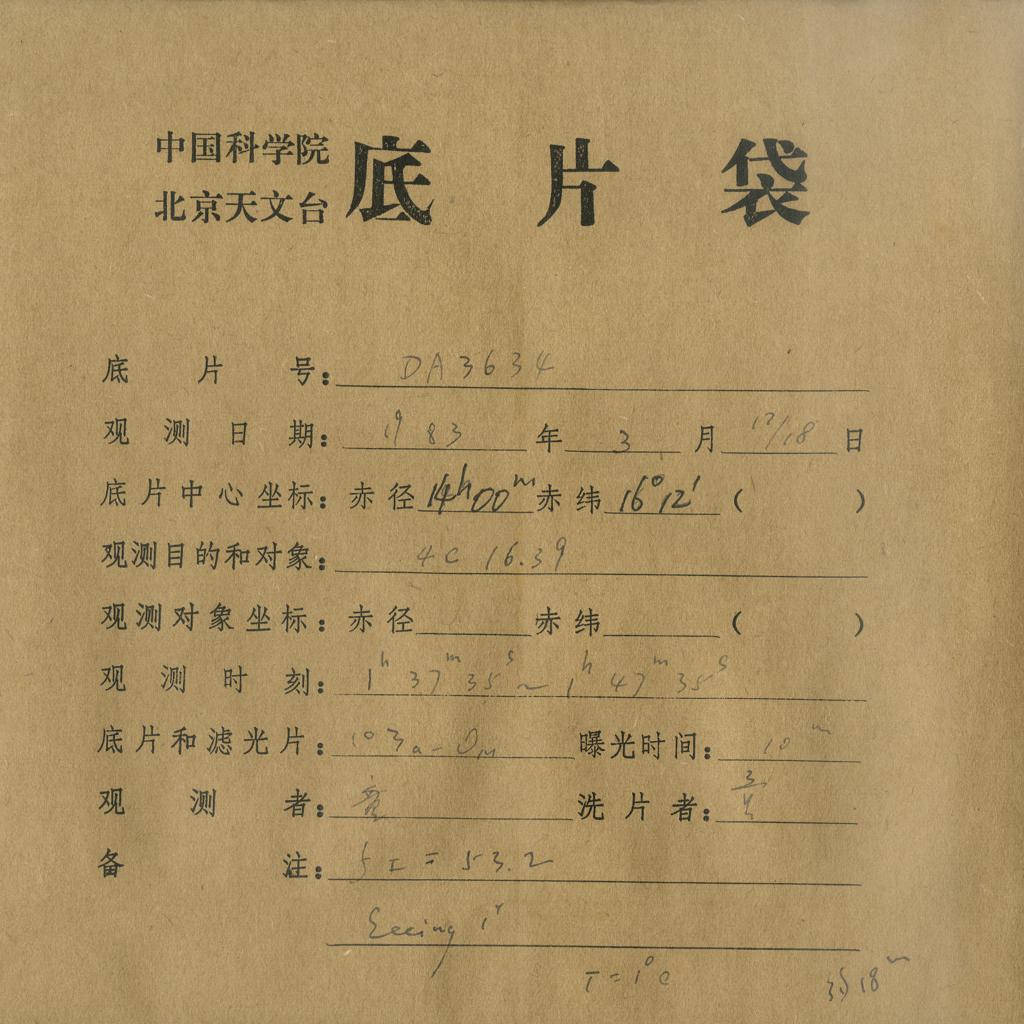 中国科学院
北京天文台
底片袋
底片号: DA3634
观测日期: 1983年3月17/18日
底片中心坐标: 赤径14h00m赤纬16°12′( )
观测目的和对象: 4C 16.39
观测对象坐标: 赤径 赤纬 ( )
观测时刻: 1h37m35s~1h47m35s
底片和滤光片: 103a-O 曝光时间: 10m
观测者: 洗片者:
备注: = 53.2
Seeing 1"
T=1°C 18m